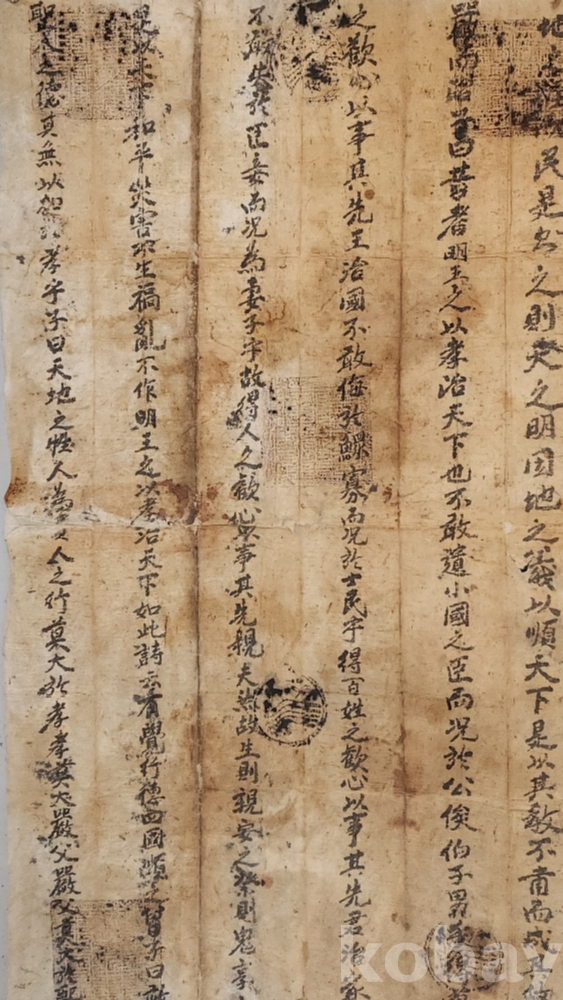 地 民是 之則天之明因地之義以順天下是以其敎不肅而成其
嚴而治 曰昔者明王之以孝治天下也不敢遺小國之臣而况於公侯伯子男 得
之歡心以事其先王治國不敢侮於鰥寡而况於士民乎得百姓之歡心以事其先君治家
不敢失於臣妾而况為妻子乎故得人之歡心以事其先親夫然故生則親安之祭則鬼享
是以天下和平災害不生禍亂不作明王之以孝治天下如此詩云有覺行德四國順之曾子曰敢
聖人之德其無以加於孝乎子曰天地之性人為 人之行莫大於孝孝莫大嚴父嚴父莫大於配
kobay